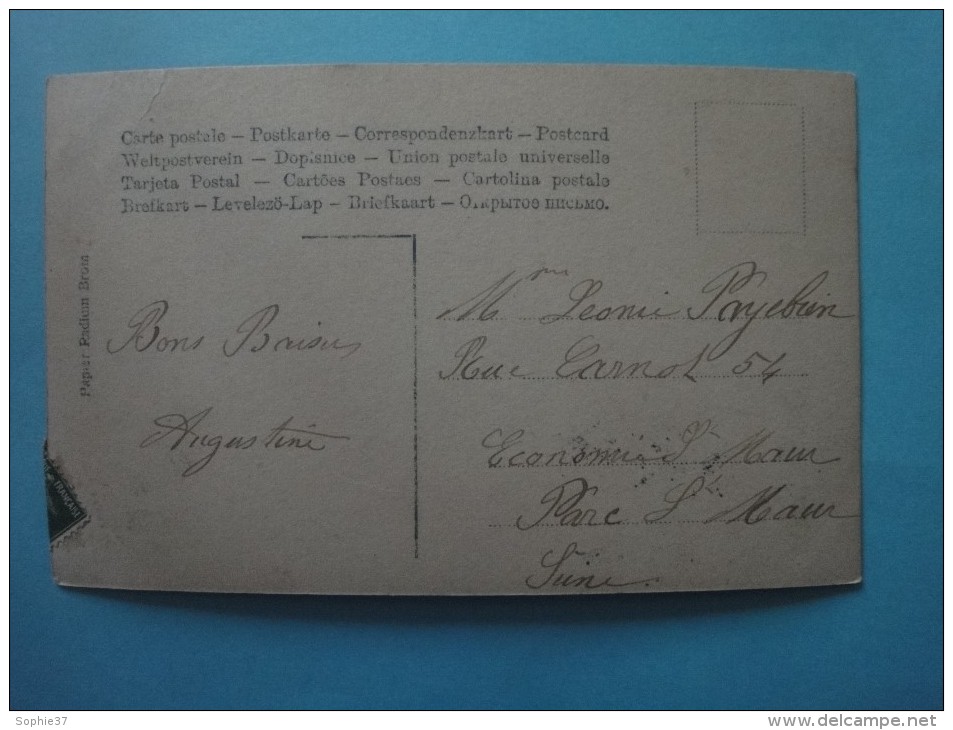 Carte postale – Postkarte – Correspondenzkart – Postcard
Weltpostverein – Dopisnice – Union postale universelle
Tarjeta Postal – Cartões Postaes – Cartolina postale
Brefkart – Levelező-Lap – Briefkaart – Открытое письмо.
Papier Radium Brom
Bons Baisers
Augustine
Mme Leonie Payebien
Rue Carnot 54
Economie St Maur
Parc St Maur
Seine.
FRANÇAISE
Sophie37
www.delcampe.net